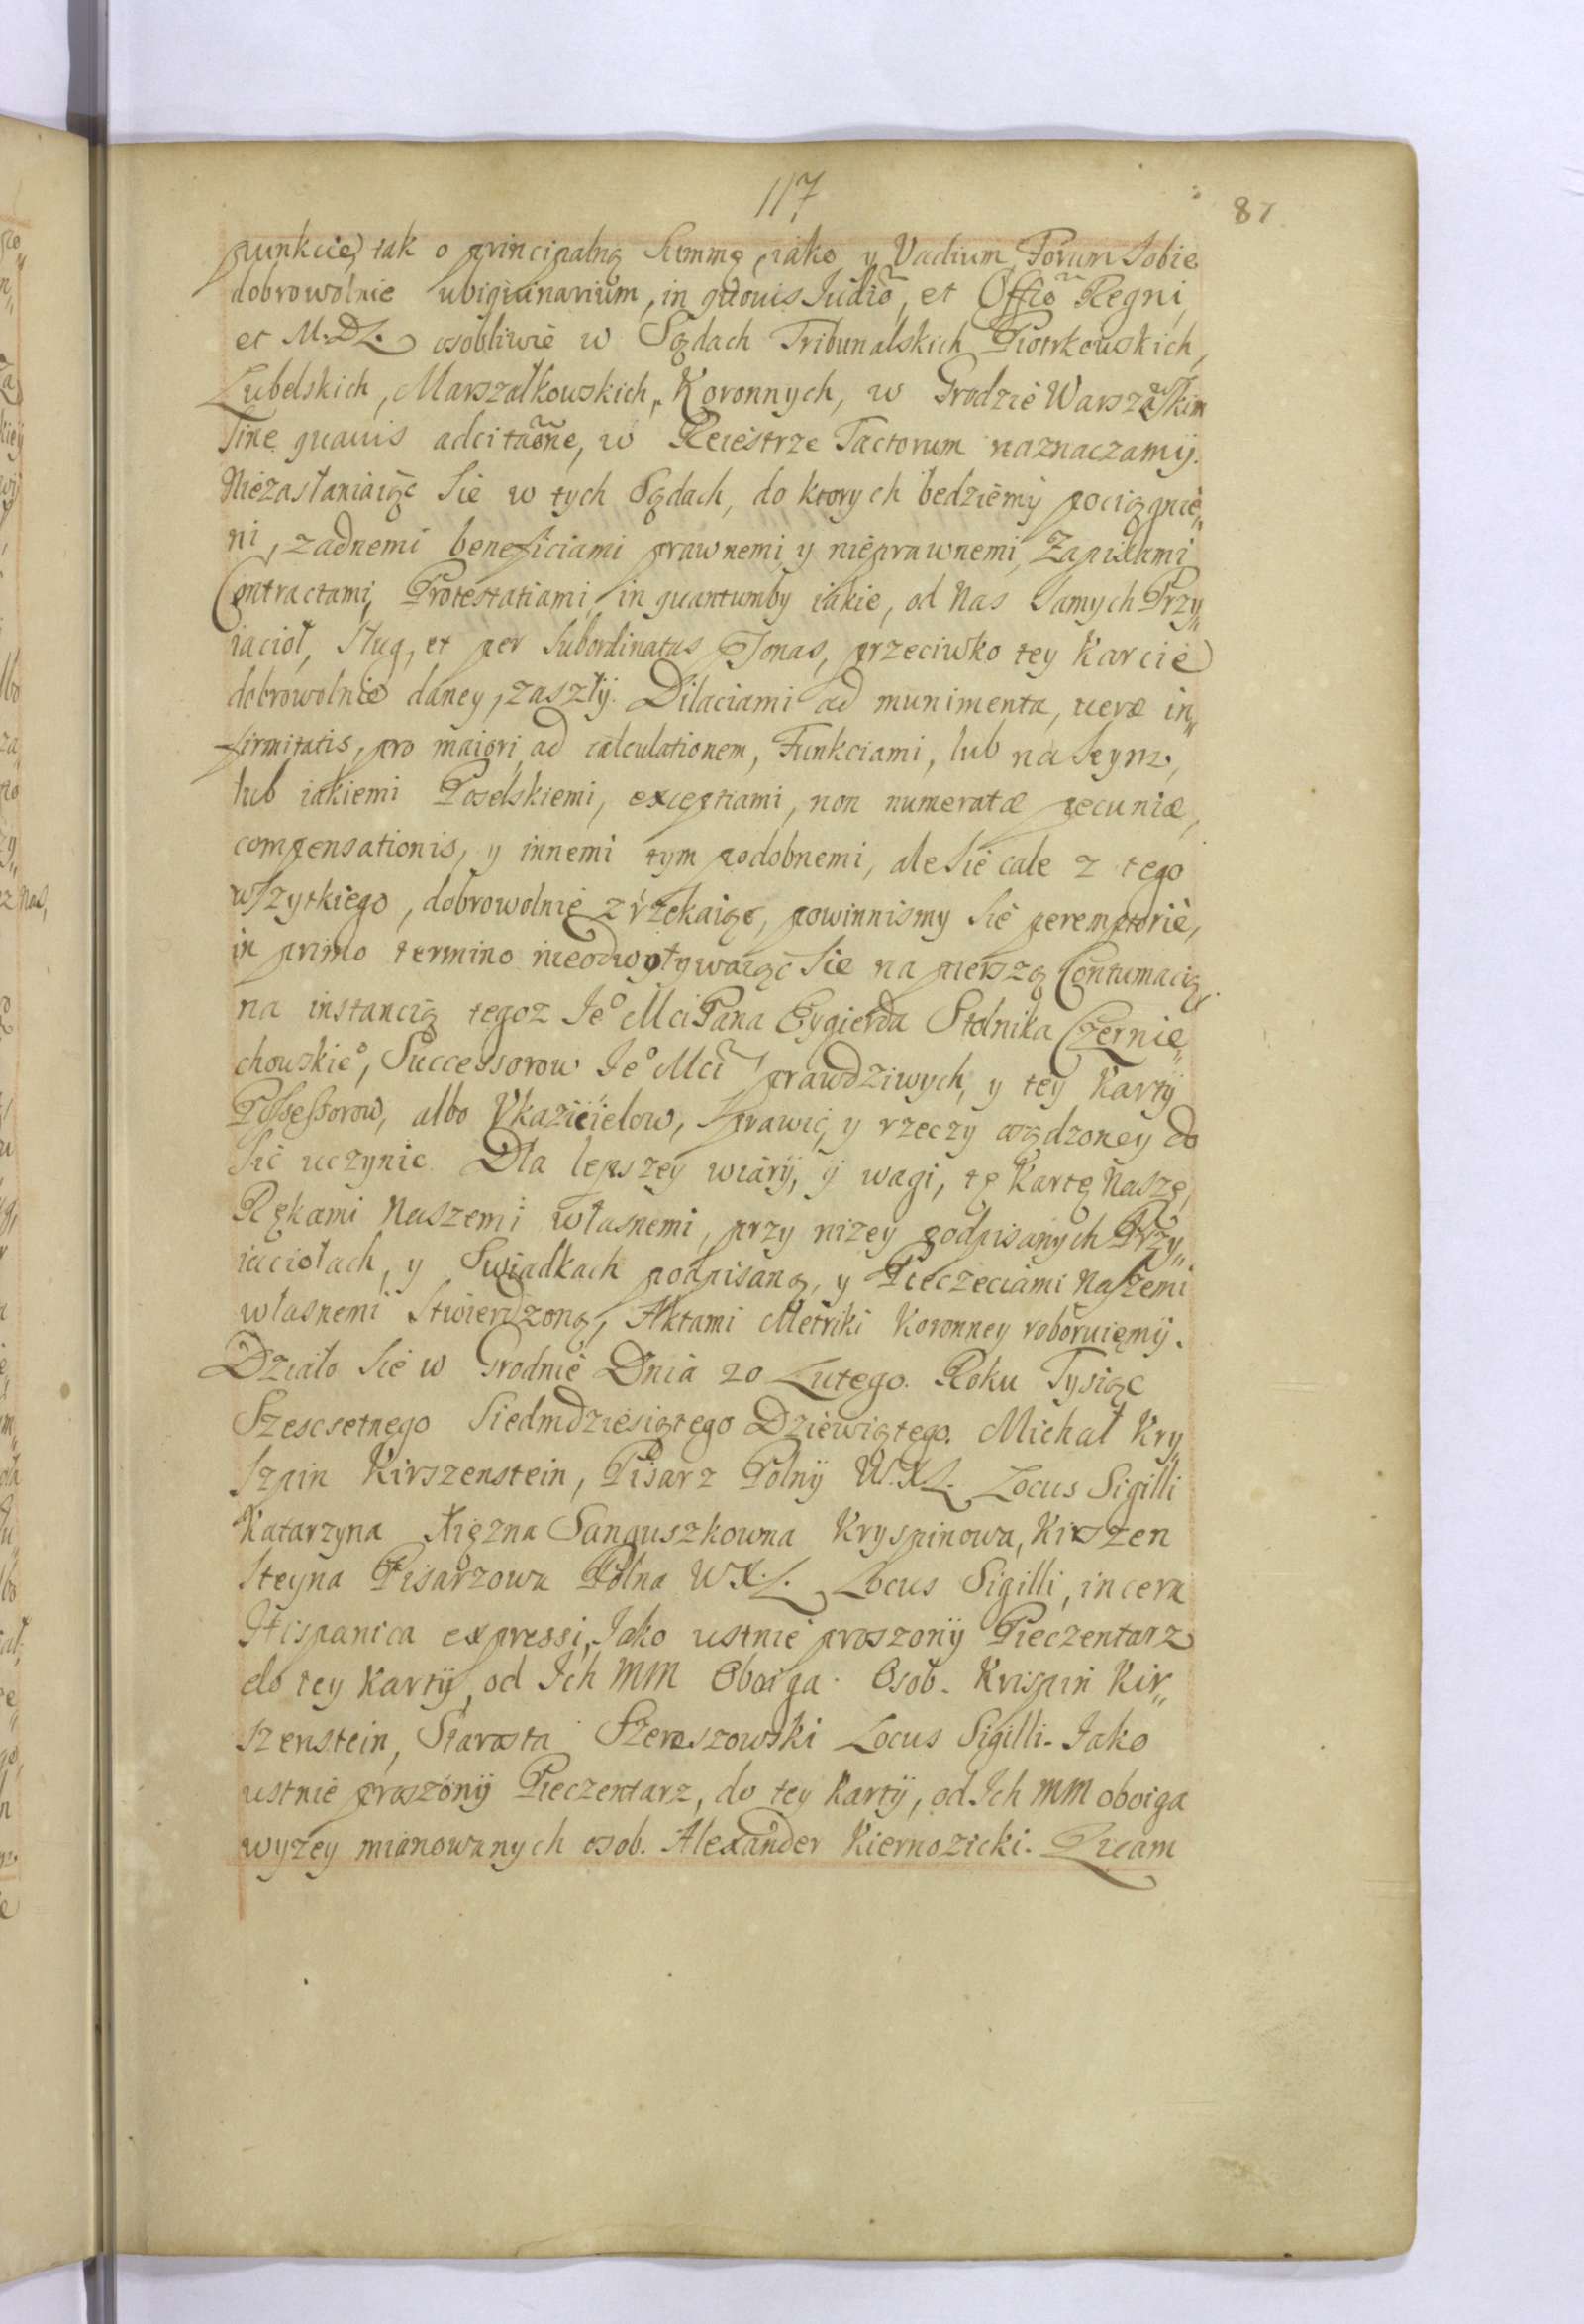 117
87
punkcie, tak o principalną Summę, iako y Vadium, Forum Sobie
dobrowolnie ubiquinarium, in quovis Iudiõ, et Offiõ Regni,
et M. D L. osobliwie w Sądach Tribunalskich Piotrkowskich,
Lubelskich, Marszałkowskich, Koronnych, w Grodzie Warszãskim
Sine quavis adcitaõne, w Reiestrze Factorum naznaczamy.
Niezasłaniaiąc Sie w tych Sądach, do ktorych bedziemy pociągnie„
ni, zadnemi beneficiami prawnemi, y nieprawnemi, Zapisami
Contractami, Protestatiami, in quantumby iakie, od Nas Samych Przy„
iacioł, Sług, et per Subordinatas Psonas, przeciwko tey Karcie
dobrowolnie daney, zaszły. Dilaciami ad munimenta, veræ in„
firmitatis, pro maiori, ad calculationem, Funkciami, lub na Seym,
lub iakiemi Poselskiemi, exceptiami, non numeratæ pecuniæ,
compensationis, y innemi tym podobnemi, ale Sie cale z tego
wszytkiego, dobrowolnie zrzekaiąc, powinnismy Sie peremptorie,
in primo termino nieodwoływaiąc Sie na pierszą Contumacią
na instancią tegoz Ie° Mci Pana Gygierda Stolnika Czernie„
chowskie°, Successorow Ie° Mci prawdziwych, y tey Karty
Possessorow, albo Ukazicielow, Sprawic, y rzeczy osądzoney do
Sic uczynic. Dla lepszey wiary, y wagi, tę Kartę Naszę,
Rękami Naszemi własnemi, przy nizey podpisanych Przy„
iaciołach, y Swiadkach podpisaną, y Pieczeciami Naszemi
własnemi Stwierdzoną, Aktami Metriki Koronney roboruięmy.
Działo Sie w Grodnie Dnia 20 Lutego. Roku Tysiąc
Szescsetnego Siedmdziesiątego Dziewiątego. Michał Kry„
Szpin Kirszenstein, Pisarz Polny W. X L. Locus Sigilli
Katarzyna Xięzna Sanguszkowna Kryspinowa, Kirszen
Steyna Pisarzowa Polna W X. L. Locus Sigilli, in cera
Hispanica expressi, Iako ustnie proszony Pieczentarz
do tey Karty, od Ich MM Oboiga Osob. Krispin Kir„
szenstein, Starosta Szereszowski Locus Sigilli. Iako
ustnie proszony Pieczentarz, do tey Karty, od Ich MM oboiga
wyzey mianowanych osob. Alexander Kiernozicki. Quam